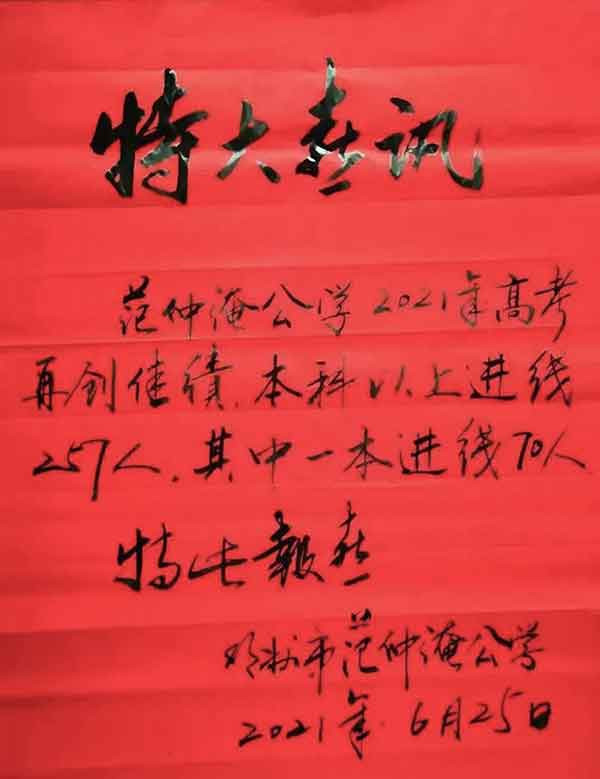 特大喜讯
范仲淹公学2021年高考
再创佳绩,本科以上进线
257人,其中一本进线70人
特此報喜
邓州市范仲淹公学
2021年6月25日